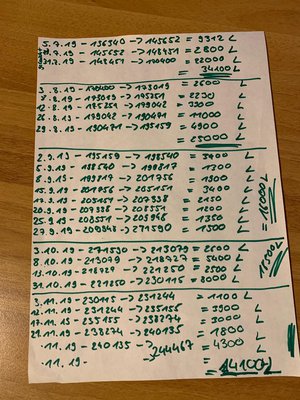 5.7.19 - 136340 -> 145652 = 9312 L
.7.19 - 145652 -> 148451 = 2800 L
31.7.19 - 148451 -> 170400 = 22000 L
= 34100 L
3.8.19 - 170400 -> 173019 = 2600
.8.19 - 173019 -> 175251 = 2230 L
12.8.19 - 175251 -> 179042 = 3900 L
26.8.19 - 179042 -> 190471 = 11000 L
29.8.19 - 190471 -> 195159 = 4900 L
= 25000 L
2.9.19 - 195159 -> 198540 = 3400 L
.9.19 - 198540 -> 199817 = 1300 L
.9.19 - 199817 -> 201756 = 1900 L
15.9.19 - 201756 -> 205151 = 3400 L
17.9.19 - 205151 -> 207338 = 2150 L
20.9.19 - 207338 -> 208551 = 1200 L
25.9.19 - 208551 -> 209948 = 1350 L
27.9.19 - 209848 -> 271590 = 1500 L
= 16000 L
3.10.19 - 271590 -> 213079 = 2500 L
8.10.19 - 213079 -> 218727 = 5400 L
13.10.19 - 218727 -> 221250 = 2500 L
31.10.19 - 221250 -> 230115 = 8000 L
3.11.19 - 230115 -> 231244 = 1100 L
12.11.19 - 231244 -> 235155 = 3900 L
17.11.19 - 235155 -> 238274 = 3000 L
21.11.19 - 238274 -> 240135 = 1800 L
.11.19 - 240135 -> 244467 = 4300 L
.11.19 -
= 14100 L